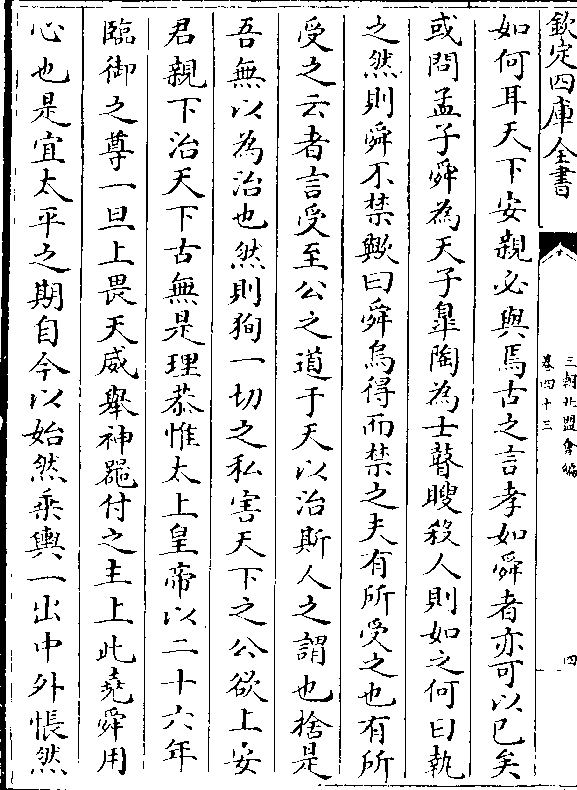 欽定四庫全書
三朝北盟會編
卷四十三
四
如何耳天下安親必與焉古之言孝如舜者亦可以已矣
或問孟子舜為天子臯陶為士瞽瞍殺人則如之何曰執
之然則舜不禁歟曰舜烏得而禁之夫有所受之也有所
受之云者言受至公之道于天以治斯人之謂也捨是
吾無以為治也然則狥一切之私害天下之公欲上安
君親下治天下古無是理恭惟太上皇帝以二十六年
臨御之尊一旦上畏天威舉神器付之主上此堯舜用
心也是宜太平之期自今以始然乘輿一出中外悵然